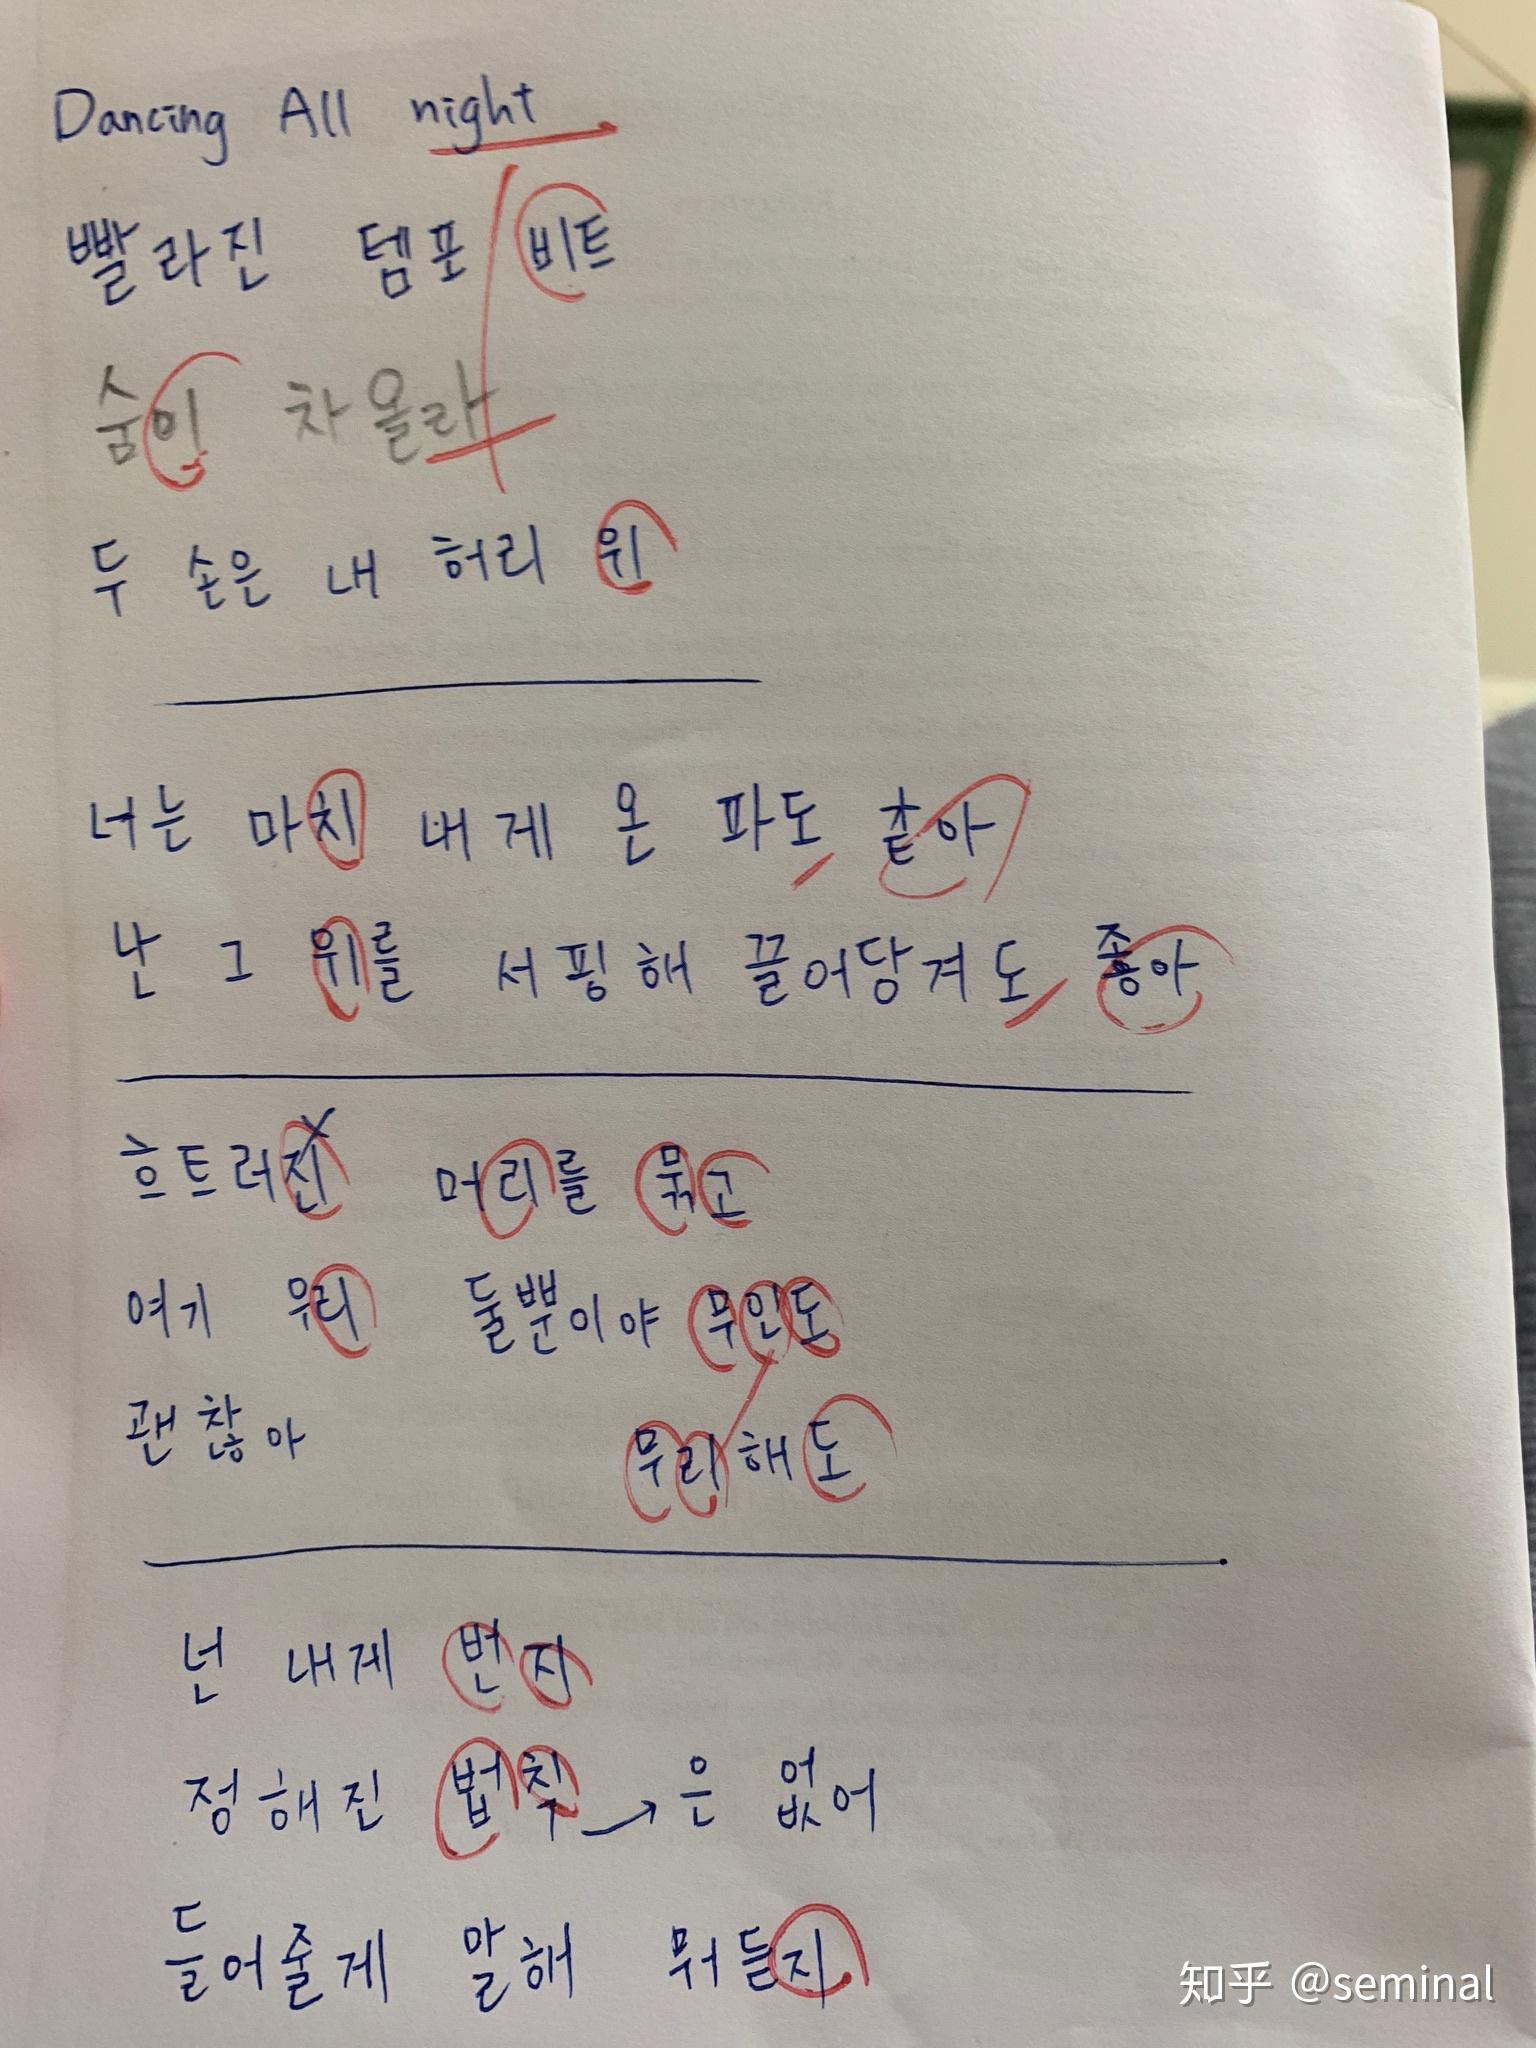 Dancing All night
빨라진 템포 비트
숨이 차올라
두 손은 내 허리 위
너는 마치 내게 온 파도 같아
난 그 위를 서핑해 끌어당겨도 좋아
흐트러진 머리를 묶고
여기 우리 둘뿐이야 무인도
괜찮아 무리해도
넌 내게 번지
정해진 법칙 은 없어
들어줄게 말해 뭐든지
知乎 @seminal